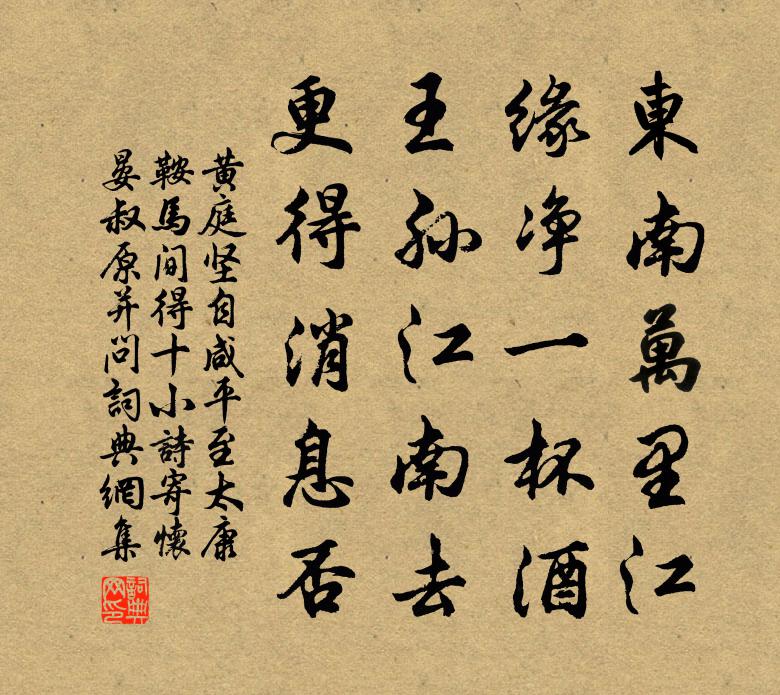 東南萬里江
緣净一杯酒
王孙江南去
更得消息否
黄庭坚自咸平至太康
鞍馬间得十小詩寄懷
晏叔原并问詞典網集
詞典网印